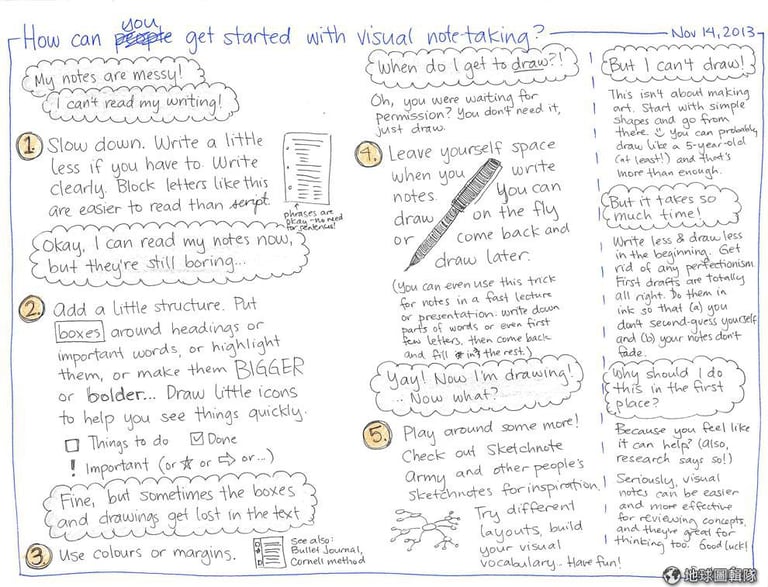 How can people you get started with visual note-taking?
Nov 14, 2013
My notes are messy!
I can't read my writing!
1. Slow down. Write a little
less if you have to. Write
clearly. Block letters like this
are easier to read than script.
phrases are
okay - no need
for sentences!
Okay, I can read my notes now,
but they're still boring...
2. Add a little structure. Put
boxes around headings or
important words, or highlight
them, or make them BIGGER
or bolder... Draw little icons
to help you see things quickly.
Things to do Done
! Important (or ☆ or ⇨ or...)
Fine, but sometimes the boxes
and drawings get lost in the text
3. Use colours or margins.
See also:
Bullet Journal,
Cornell method
When do I get to draw?!
Oh, you were waiting for
permission? You don't need it,
just draw.
4. Leave yourself space
when you write
notes. You can
draw on the fly
or come back and
draw later.
(You can even use this trick
for notes in a fast lecture
or presentation: write down
parts of words or even first
few letters, then come back
and fill in the rest.)
Yay! Now I'm drawing!
... Now what?
5. Play around some more!
Check out Sketchnote
Army and other people's
sketchnotes for inspiration.
Try different
layouts, build
your visual
vocabulary... Have fun!
But I can't draw!
This isn't about making
art. Start with simple
shapes and go from
there. You can probably
draw like a 5-year-old
(at least!) and that's
more than enough.
But it takes so
much time!
Write less & draw less
in the beginning. Get
rid of any perfectionism.
First drafts are totally
all right. Do them in
ink so that (a) you
don't second-guess yourself
and (b) your notes don't
fade.
Why should I do
this in the first
place?
Because you feel like
it can help? (Also,
research says so!)
Seriously, visual
notes can be easier
and more effective
for reviewing concepts,
and they're great for
thinking too. Good luck!
地球圖輯隊